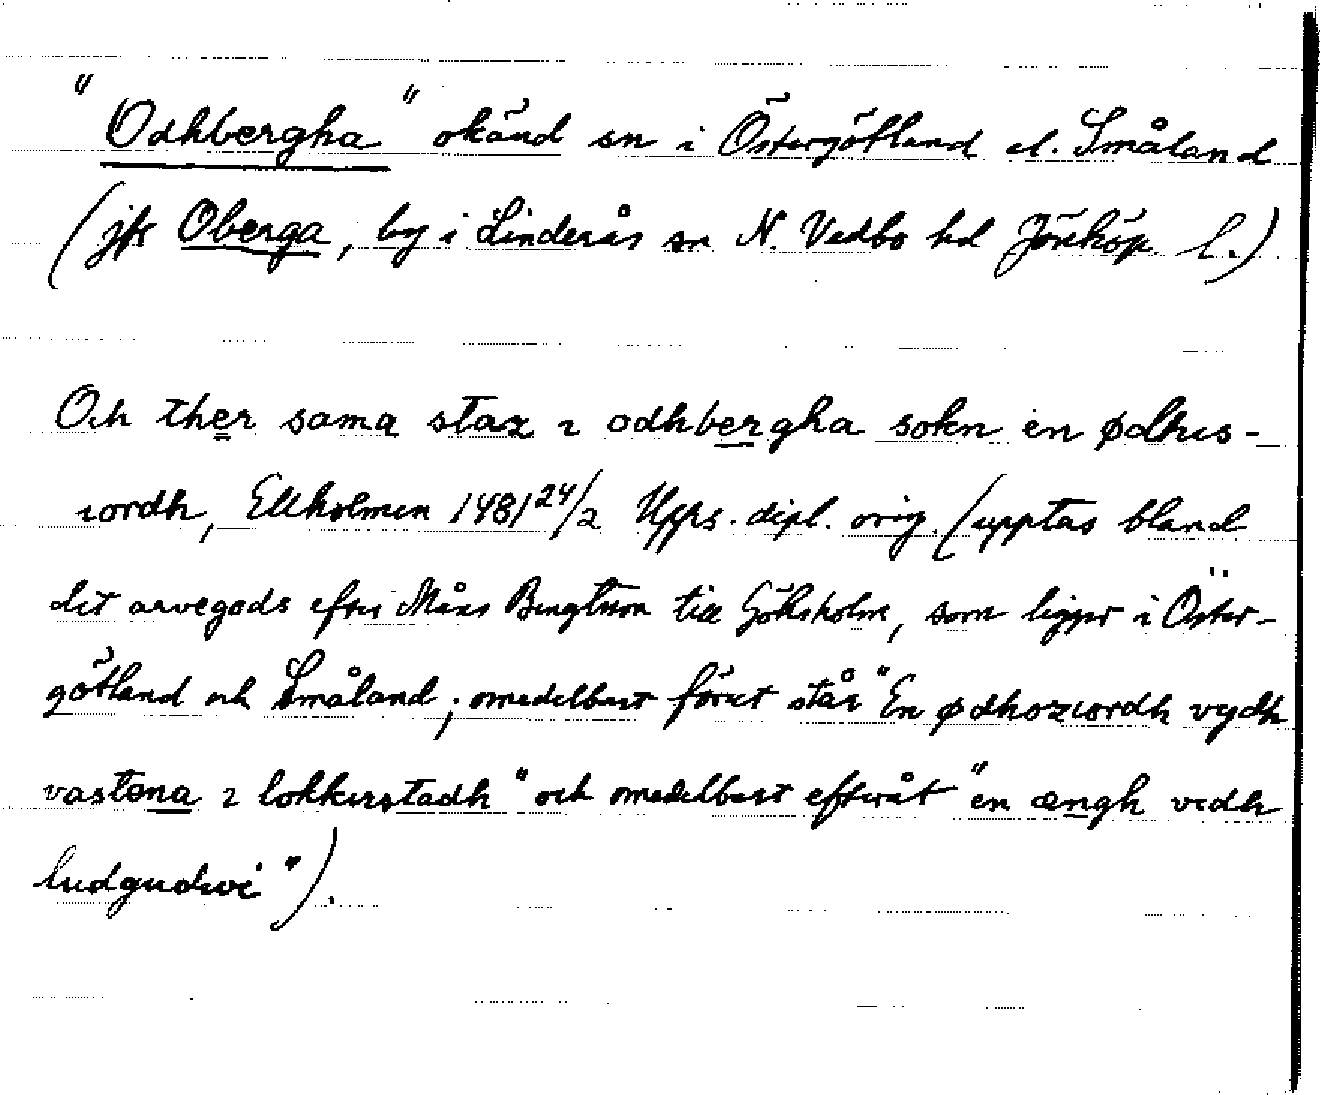 "Odhbergha" okänd sn i Östergötland el. Småland
(jfr Oberga, by i Linderås sn N. Vedbo hd Jönköp. l.)
Och ther sama stax i odhbergha sokn en ødhes-
iordh, Ellholmen 1481 24/2 Upps. dipl. orig. (upptas bland
det arvegods efter Måns Bengtsson till Göksholm, som ligger i Öster-
götland och Småland; omedelbart förut står "En ødhoziordh vydh
vastena i lokkerstadh" och omedelbart efteråt "en ængh vidh
ludgudwi").